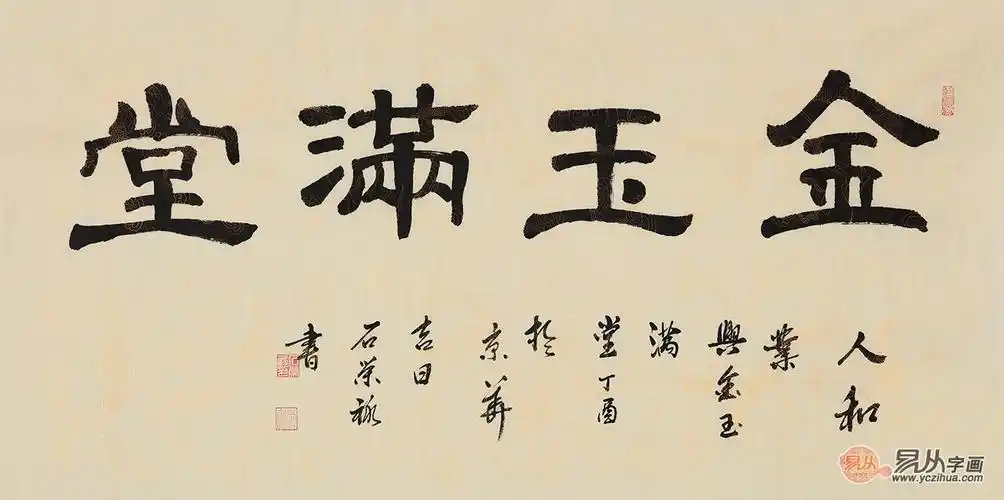 金玉滿堂
人和
業
興金玉
滿
堂丁酉
於
京華
吉日
石荣禄
書
易从
易从字画
www.yczihua.com